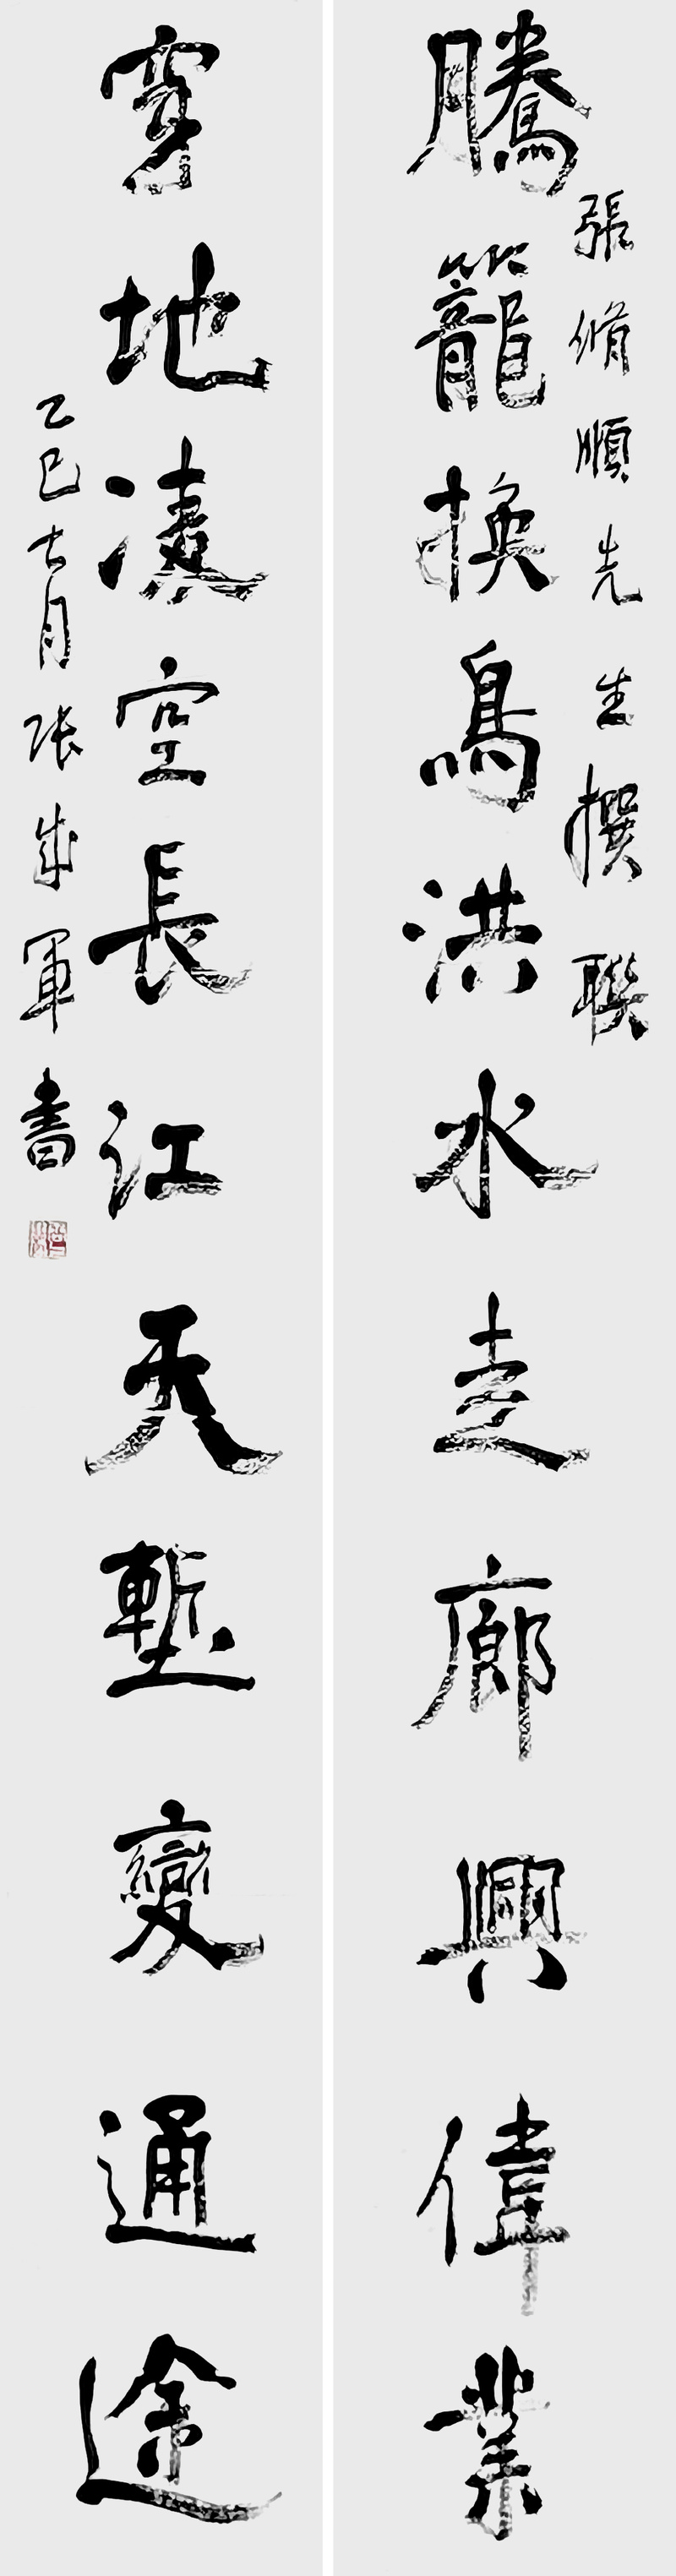 騰籠換鳥洪水走廊興偉業
張脩順先生撰聯
穿地凌空長江天塹變通途
乙巳七月張成軍書